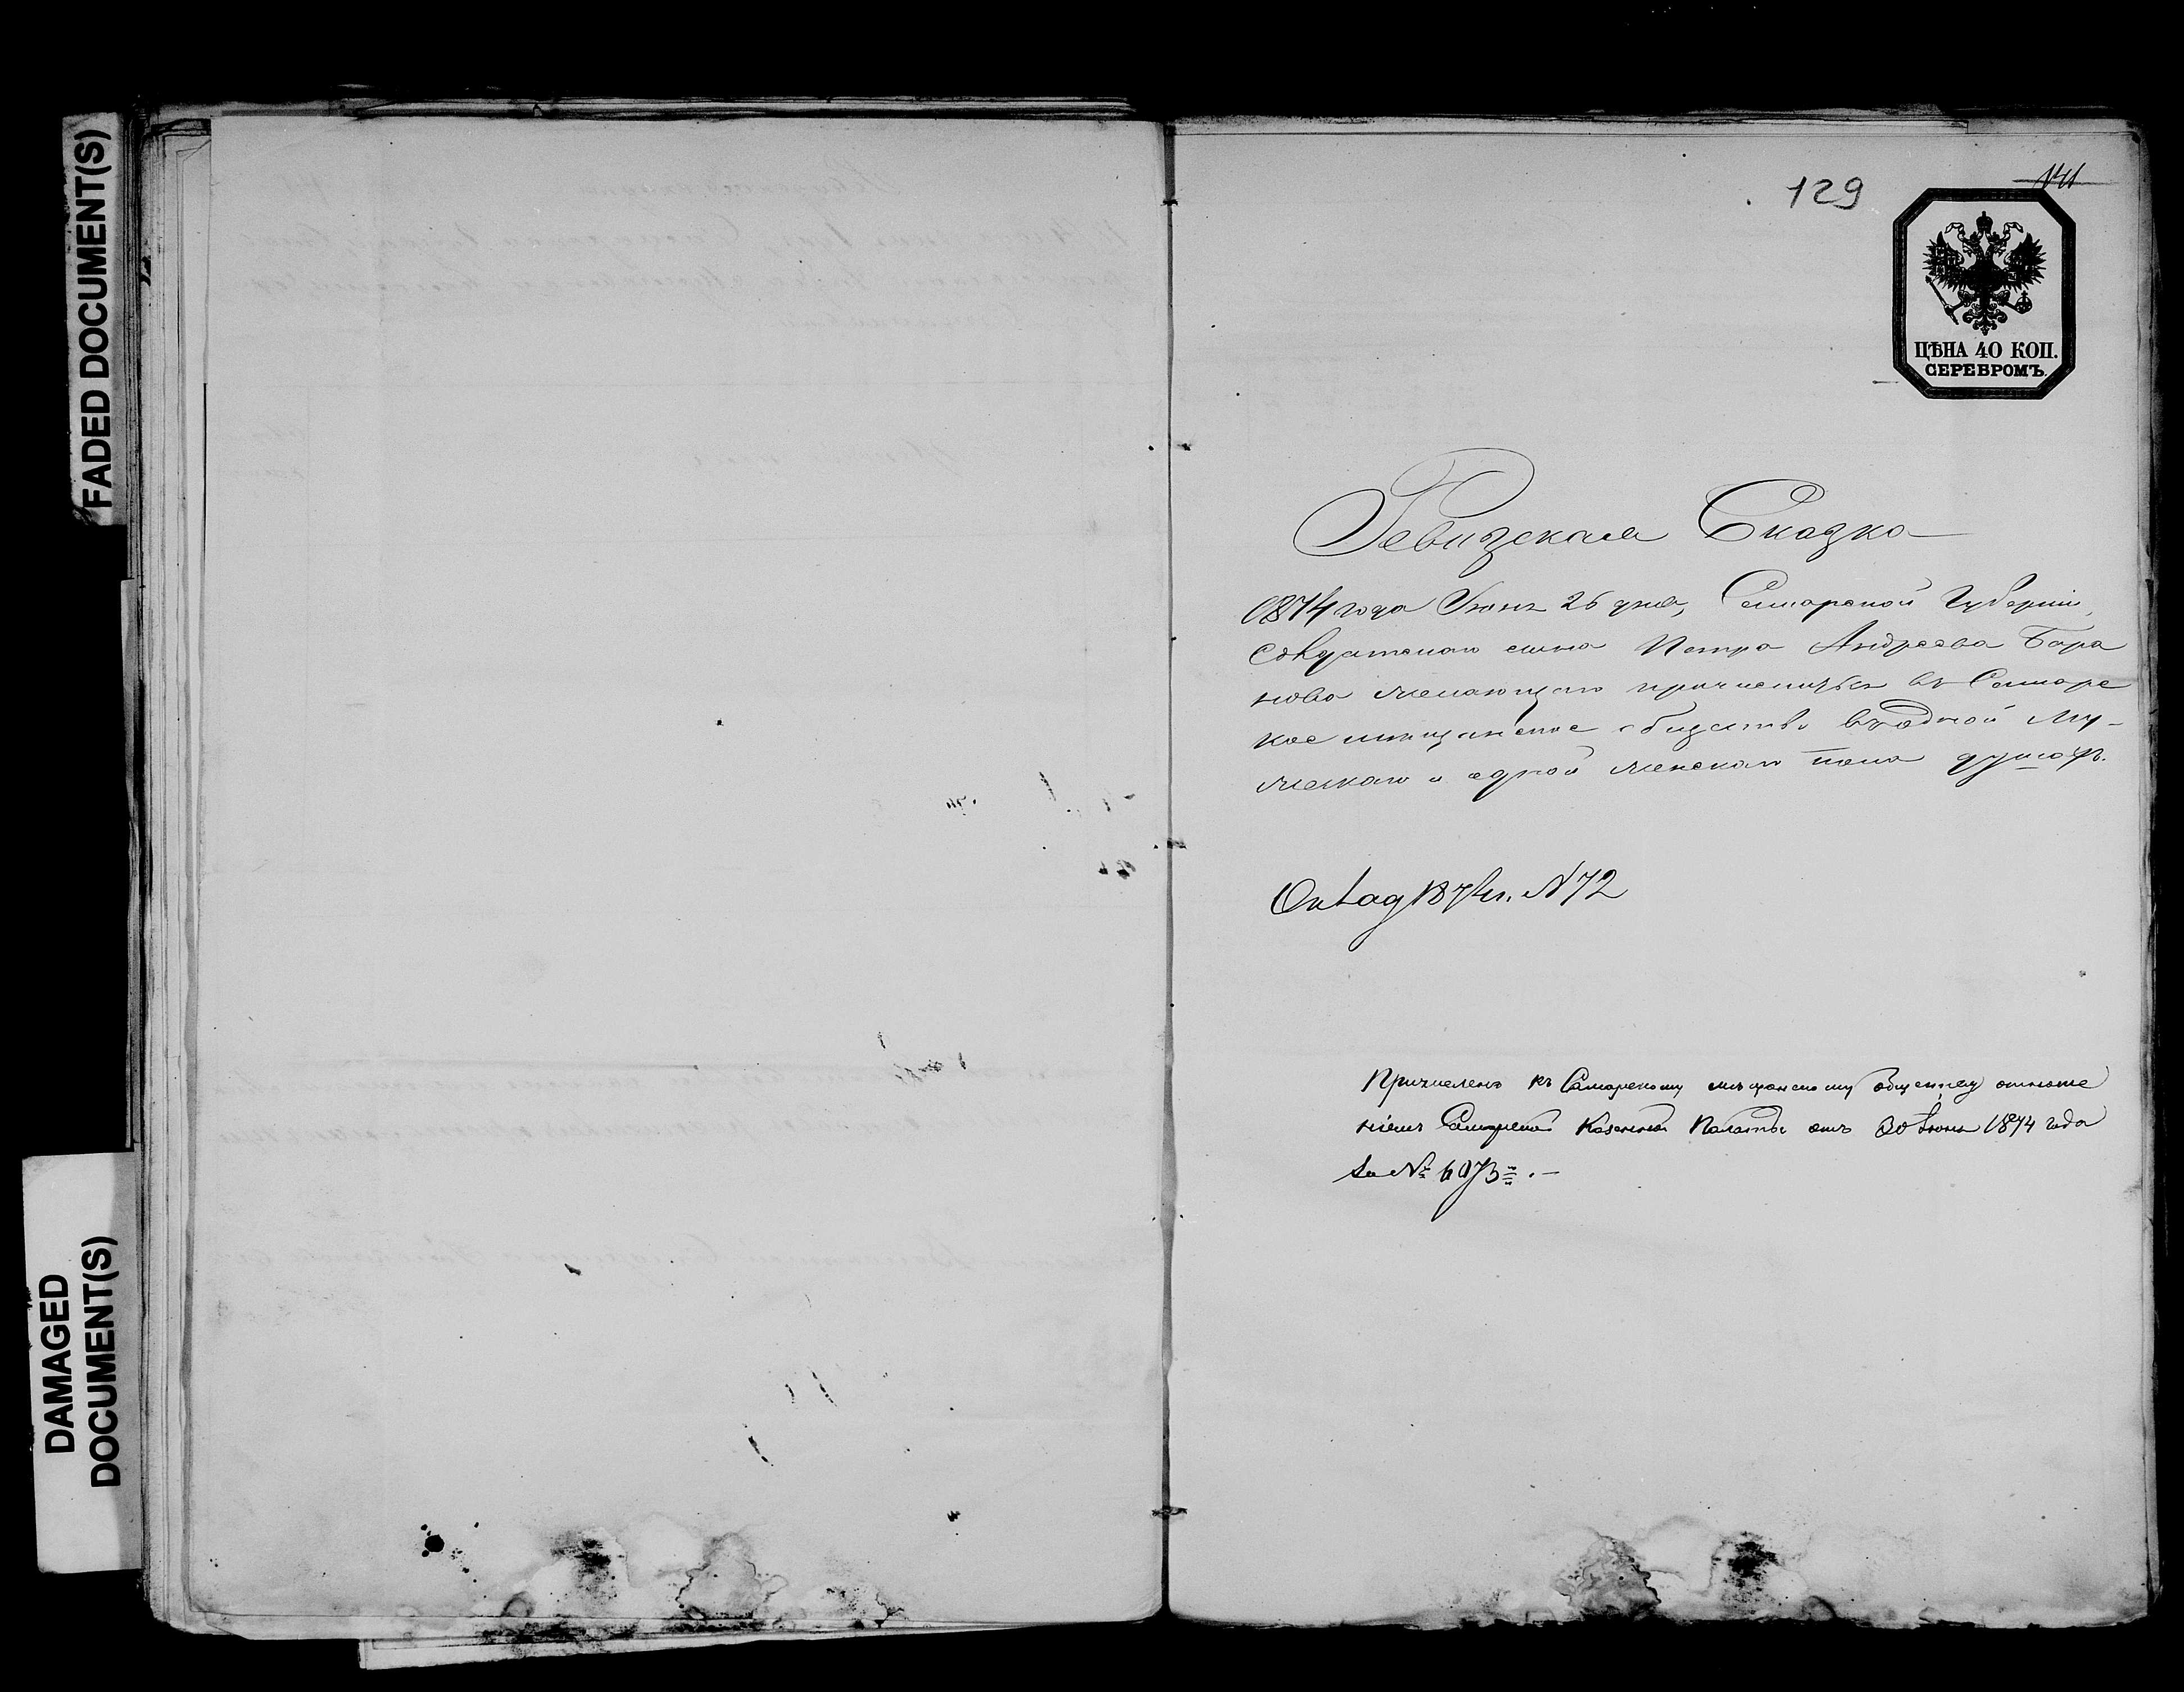 FADED DOCUMENT(S)
DAMAGED
DOCUMENT(S)
129
141
ЦѢНА 40 КОП.
СЕРЕБРОМЪ.
Ревизская Сказка
1874 года Іюня 26 дня, Самарской Губерніи,
солдатскаго сына Петра Андреева Бара
нова желающаго причислиться въ Самарс
кое мѣщанское общество въ одной му-
жескаго и одной женскаго пола душахъ.
Оклад 1874 г. N 72
Причисленъ къ Самарскому мѣщанскому обществу отноше
ніемъ Самарской Казенной Палаты отъ 30 Іюня 1874 года
за № 6073.—